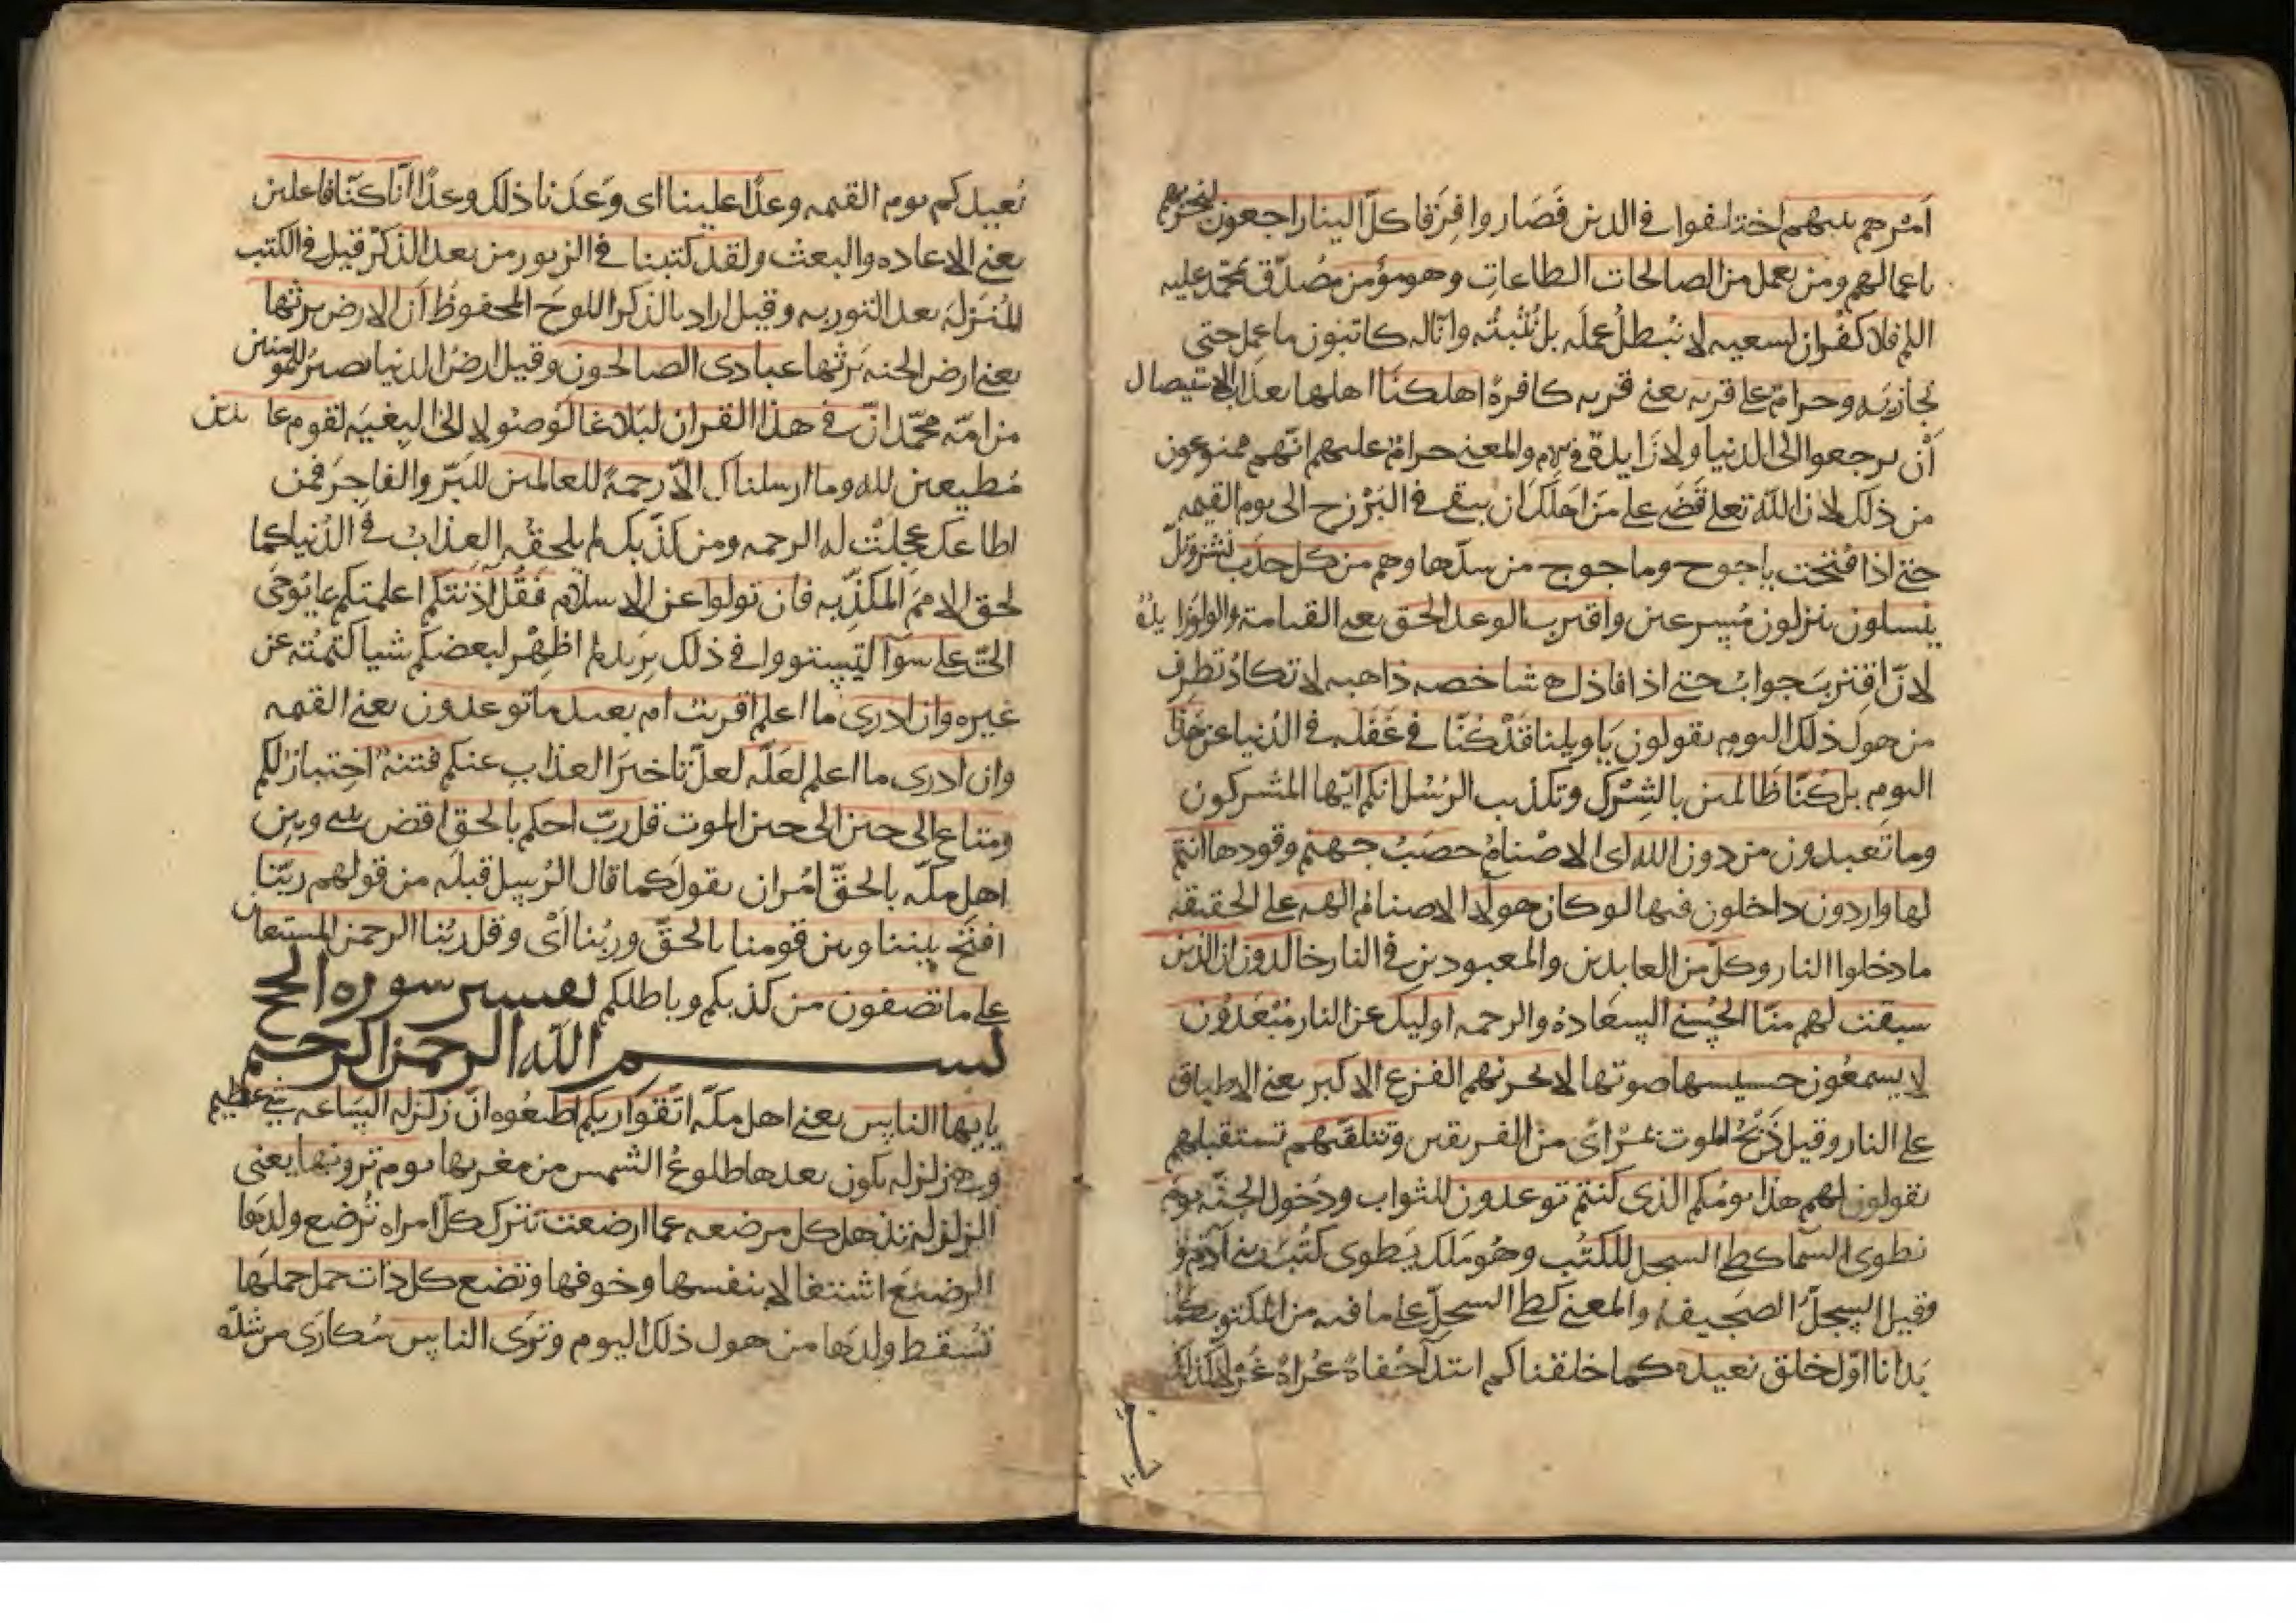 امرهم بينهم اختلفوا في الدين فصاروا فرقا كل الينا راجعون فنجزيهم
باعمالهم ومن يعمل من الصالحات الطاعات وهو مؤمن مصدق بمحمد عليه
السلم فلا كفران لسعيه لا نبطل عمله بل نثبته وانا له كاتبون ما عمل حتى
نجازيه وحرام على قريه يعني قريه كافرة اهلكناها اهلها بعذاب الاستيصال
أن يرجعوا الى الدنيا ولا زايدة في والمعنى حرام عليهم انهم ممنوعون
من ذلك لان الله تعلى قضى على من اهلك ان يبقى في البرزخ الى يوم القيمه
حتى اذا فتحت ياجوج وماجوج من سدها وهم من كل حدب نشز وتل
ينسلون ينزلون مسرعين واقترب الوعد الحق يعني القيامة والواو زايدة
لان اقترب جواب حتى اذا فاذا هي شاخصه ذاهبه لا تكاد تطرف
من هول ذلك اليوم يقولون يا ويلنا قد كنا في غفله في الدنيا عن هذا
اليوم بل كنا ظالمين بالشرك وتكذيب الرسل انكم ايها المشركون
وما تعبدون من دون الله اى الاصنام حصب جهنم وقودها انتم
لها واردون داخلون فيها لو كان هولا الاصنام الهه على الحقيقه
ما دخلوا النار وكل من العابدين والمعبودين في النار خالدون ان الذين
سبقت لهم منا الحسنى السعادة والرحمه اوليك عن النار مبعدون
لا يسمعون حسيسها صوتها لا يحزنهم الفزع الاكبر يعني الاطباق
على النار وقيل ذبح الموت بمراى من الفريقين وتتلقيهم تستقبلهم
يقولون لهم هذا يومكم الذى كنتم توعدون للثواب ودخول الجنه يوم
نطوى السما كطي السجل للكتب وهو ملك يطوى كتب بني آدم
وقيل السجل الصحيفه والمعنى كطي السجل على ما فيه من المكتوب كما
بدانا اول خلق نعيده كما خلقناكم ابتدآ حفاة عراة غرلا كذلك
نعيدكم يوم القيمه وعدا علينا اى وعدنا ذلك وعدا انا كنا فاعلين
يعني الاعاده والبعث ولقد كتبنا في الزبور من بعد الذكر قيل في الكتب
المنزله بعد التوريه وقيل اراد بالذكر اللوح المحفوظ أن الارض يرثها
يعني ارض الجنه يرثها عبادى الصالحون وقيل ارض الدنيا تصير للمؤمنين
من امه محمد ان في هذا القران لبلاغا لوصولا الى البغيه لقوم عابدين
مطيعين لله وما ارسلناك الا رحمة للعالمين للبر والفاجر فمن
اطاعك عجلت له الرحمه ومن كذبك لم يلحقه العذاب في الدنيا كما
لحق الامم المكذبه فان تولوا عن الاسلام فقل آذنتكم اعلمتكم بما يوحى
الي على سوآ لتستووا في ذلك يريد لم اظهر لبعضكم شيا كتمته عن
غيره وان ادرى ما اعلم اقريب ام بعيد ما توعدون يعني القيمه
وان ادرى ما اعلم لعله لعل تاخير العذاب عنكم فتنة اختبار لكم
ومتاع الى حين الى حين الموت قل رب احكم بالحق اقض بيني وبين
اهل مكه بالحق امر ان يقول كما قال الرسل قبله من قولهم ربنا
افتح بيننا وبين قومنا بالحق وربنا اى وقل ربنا الرحمن المستعان
على ما تصفون من كذبكم وباطلكم تفسير سوره الحج
بسم الله الرحمن الرحيم
يايها الناس يعني اهل مكه اتقوا ربكم اطيعوه ان زلزله الساعه شي عظيم
وهي زلزله يكون بعدها طلوع الشمس من مغربها يوم ترونها يعني
الزلزله تذهل كل مرضعه عما ارضعت تترك كل امراه ترضع ولدها
الرضيع اشتغالا بنفسها وخوفها وتضع كل ذات حمل حملها
تسقط ولدها من هول ذلك اليوم وترى الناس سكارى من شده